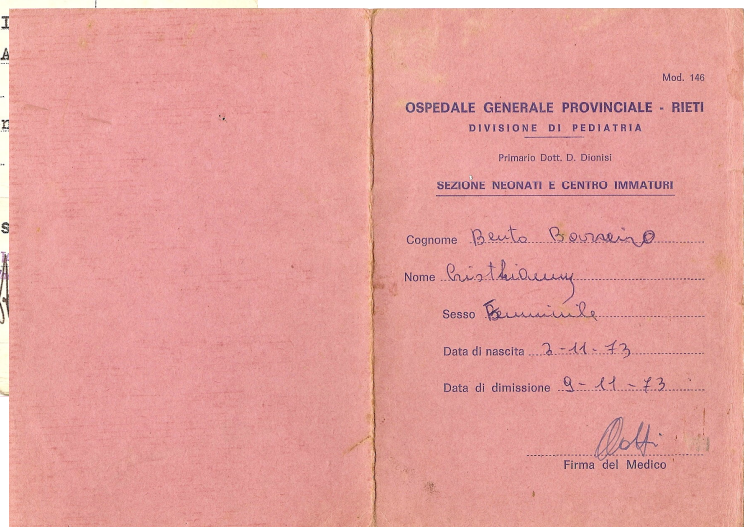 Mod. 146
OSPEDALE GENERALE PROVINCIALE - RIETI
DIVISIONE DI PEDIATRIA
Primario Dott. D. Dionisi
SEZIONE NEONATI E CENTRO IMMATURI
Cognome Bento Barreiro
Nome Cristhianny
Sesso Femminile
Data di nascita 2-11-73
Data di dimissione 9-11-73
Firma del Medico